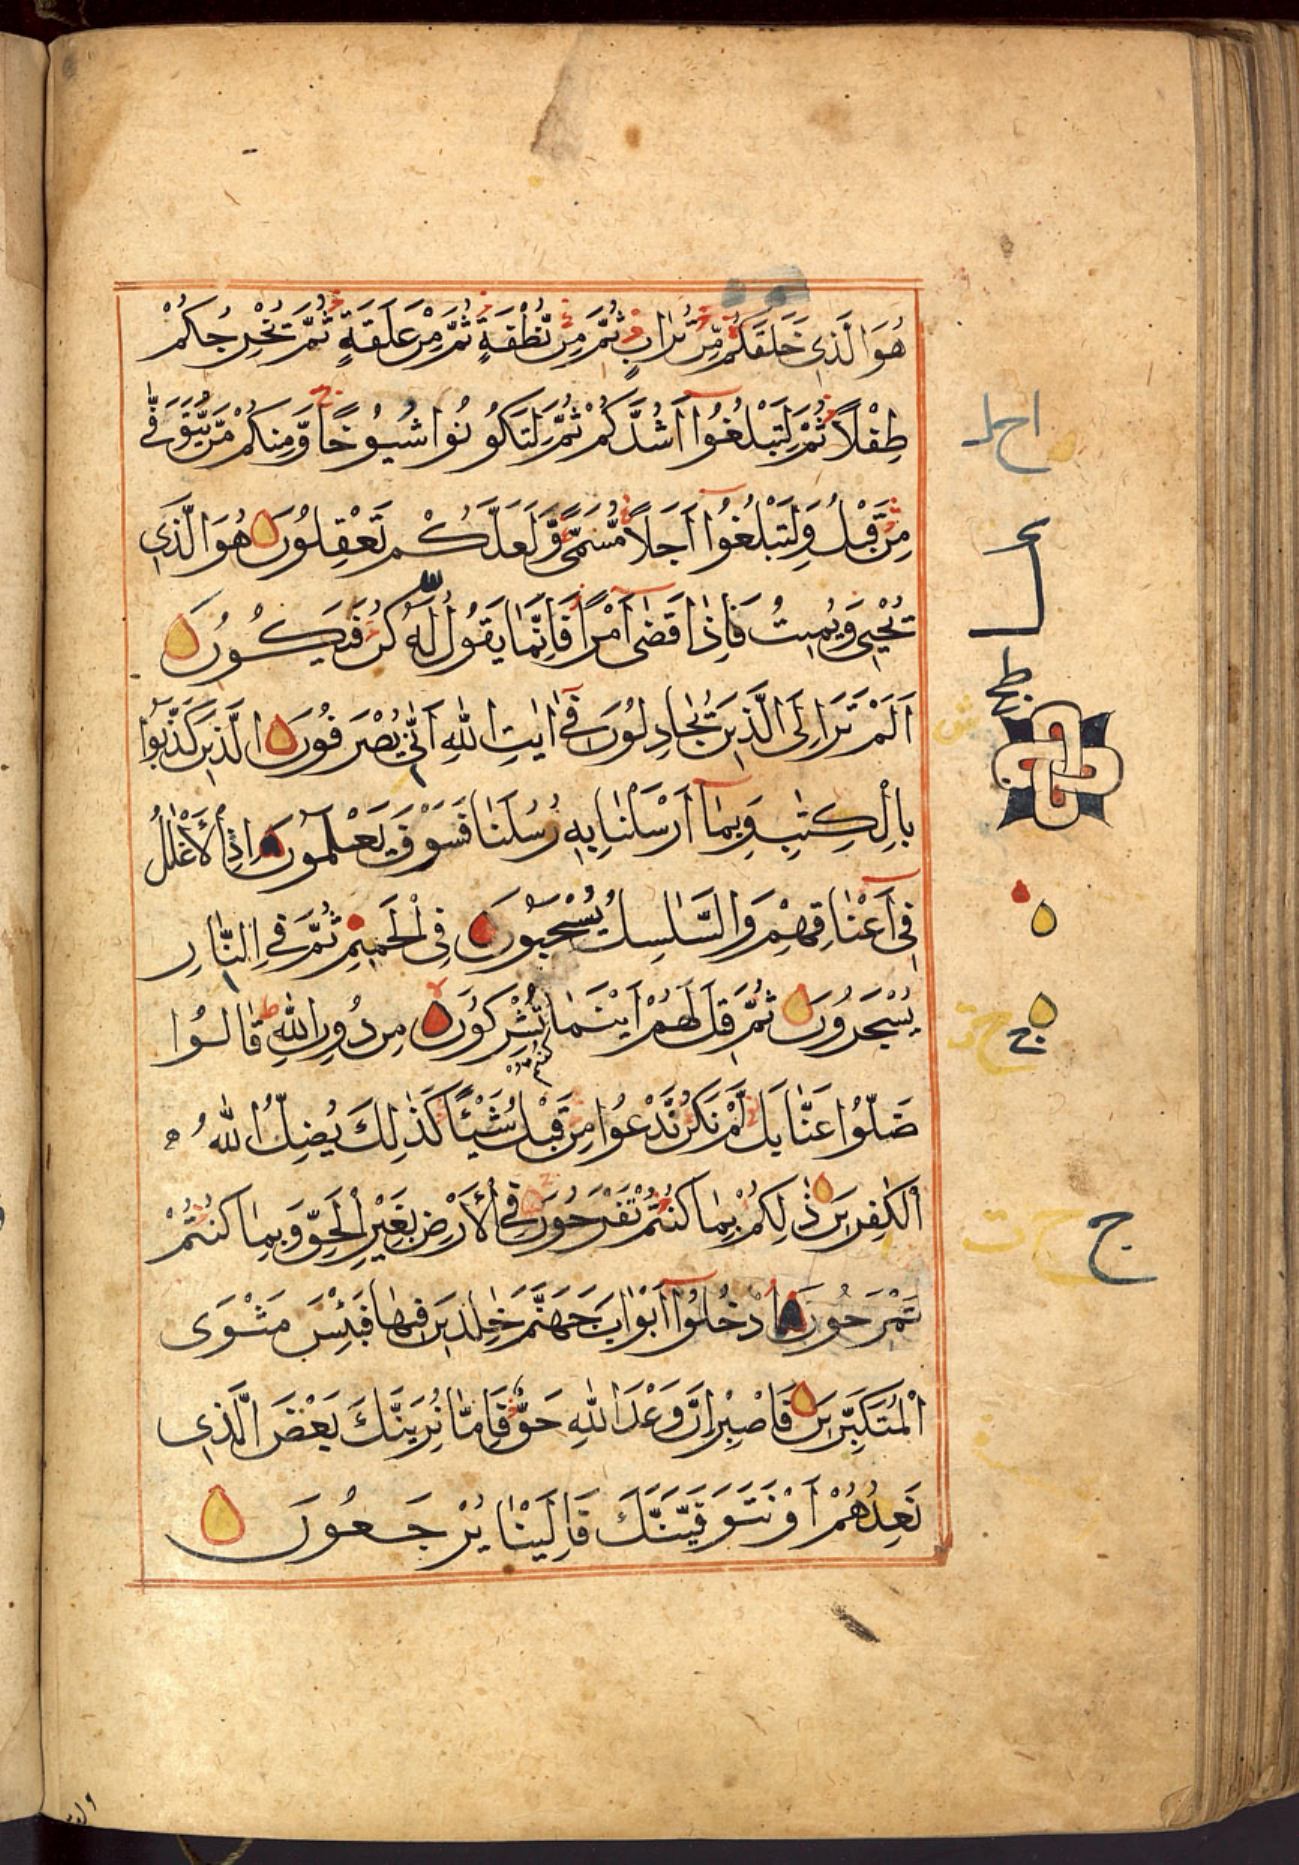 هُوَ الَّذِي خَلَقَكُمْ مِّنْ تُرَابٍ ثُمَّ مِنْ نُّطْفَةٍ ثُمَّ مِنْ عَلَقَةٍ ثُمَّ يُخْرِجُكُمْ
طِفْلًا ثُمَّ لِتَبْلُغُوا أَشُدَّكُمْ ثُمَّ لِتَكُونُوا شُيُوخًا وَّمِنكُمْ مَّنْ يُّتَوَفّٰى
مِنْ قَبْلُ وَلِتَبْلُغُوا أَجَلًا مُّسَمًّى وَّلَعَلَّكُمْ تَعْقِلُونَ هُوَ الَّذِي
يُحْيِي وَيُمِيتُ فَإِذَا قَضٰى أَمْرًا فَإِنَّمَا يَقُولُ لَهُ كُنْ فَيَكُونُ
اَلَمْ تَرَ إِلَى الَّذِينَ يُجَادِلُونَ فِي اٰيٰتِ اللّٰهِ اَنّٰى يُصْرَفُونَ الَّذِينَ كَذَّبُوا
بِالْكِتٰبِ وَبِمَا أَرْسَلْنَا بِهِ رُسُلَنَا فَسَوْفَ يَعْلَمُونَ إِذِ الْأَغْلٰلُ
فِي أَعْنَاقِهِمْ وَالسَّلٰسِلُ يُسْحَبُونَ فِي الْحَمِيمِ ثُمَّ فِي النَّارِ
يُسْجَرُونَ ثُمَّ قِيلَ لَهُمْ أَيْنَمَا تُشْرِكُونَ مِنْ دُونِ اللّٰهِ قَالُوا
كُنْتُمْ
ضَلُّوا عَنَّا بَلْ لَّمْ نَكُنْ نَّدْعُوا مِنْ قَبْلُ شَيْئًا كَذٰلِكَ يُضِلُّ اللّٰهُ
الْكٰفِرِينَ ذٰلِكُمْ بِمَا كُنْتُمْ تَفْرَحُونَ فِي الْأَرْضِ بِغَيْرِ الْحَقِّ وَبِمَا كُنْتُمْ
تَمْرَحُونَ ادْخُلُوا أَبْوَابَ جَهَنَّمَ خٰلِدِينَ فِيهَا فَبِئْسَ مَثْوَى
الْمُتَكَبِّرِينَ فَاصْبِرْ إِنَّ وَعْدَ اللّٰهِ حَقٌّ فَإِمَّا نُرِيَنَّكَ بَعْضَ الَّذِي
نَعِدُهُمْ أَوْ نَتَوَفَّيَنَّكَ فَإِلَيْنَا يُرْجَعُونَ